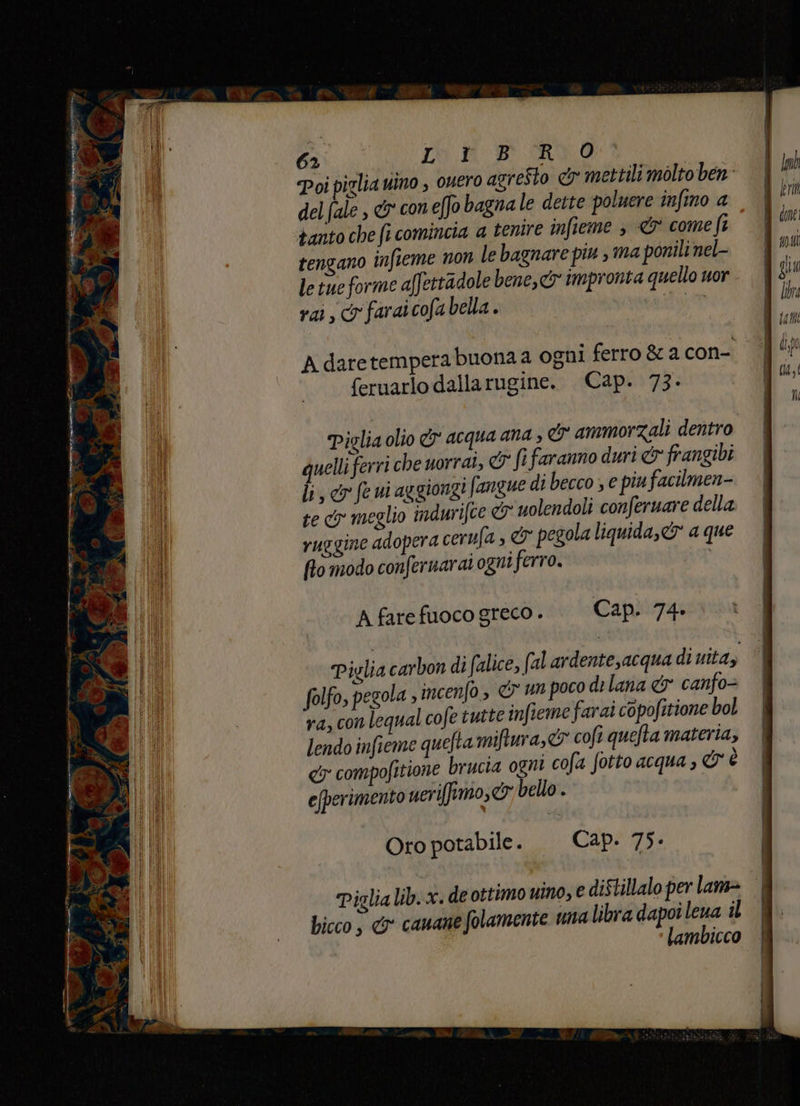 62 LIBRO
Poi piglia uino, ouero agreſto & mettili molto ben
del ſale, & con eſſo bagna le dette poluere inſino a
tanto che ſi comincia a tenire inſieme, & come ſi
tengano inſieme non le bagnare piu, ma ponili nel-
le tue forme aſſettãdole bene, & impronta quello uor
rai, & farai coſa bella.
A dare tempera buona a ogni ferro & a con-
ſeruarlo dalla rugine. Cap. 73.
Piglia olio & acqua ana, & ammorzali dentro
quelli ferri che uorrai, & ſi faranno duri & frangibi
li, & ſe ui aggiongi ſangue di becco, e piu facilmen-
te & meglio indurifce & uolendoli conſeruare della
ruggine adopera ceruſa, & pegola liquida, & a que
ſto modo conſeruarai ogni ferro.
A fare fuoco greco. Cap. 74.
Piglia carbon di ſalice, ſal ardente, acqua di uita,
ſolfo, pegola, incenſo, & un poco di lana & canfo-
ra, con lequal coſe tutte inſieme farai cõpoſitione bol
lendo inſieme queſta miſtura, & coſi queſta materia,
& compoſitione brucia ogni coſa ſotto acqua, & è
eſperimento ueriſſimo, & bello.
Oro potabile. Cap. 75.
Piglia lib. x. de ottimo uino, e diſtillalo per lam-
bicco, & cauane ſolamente una libra dapoi leua il
lambicco